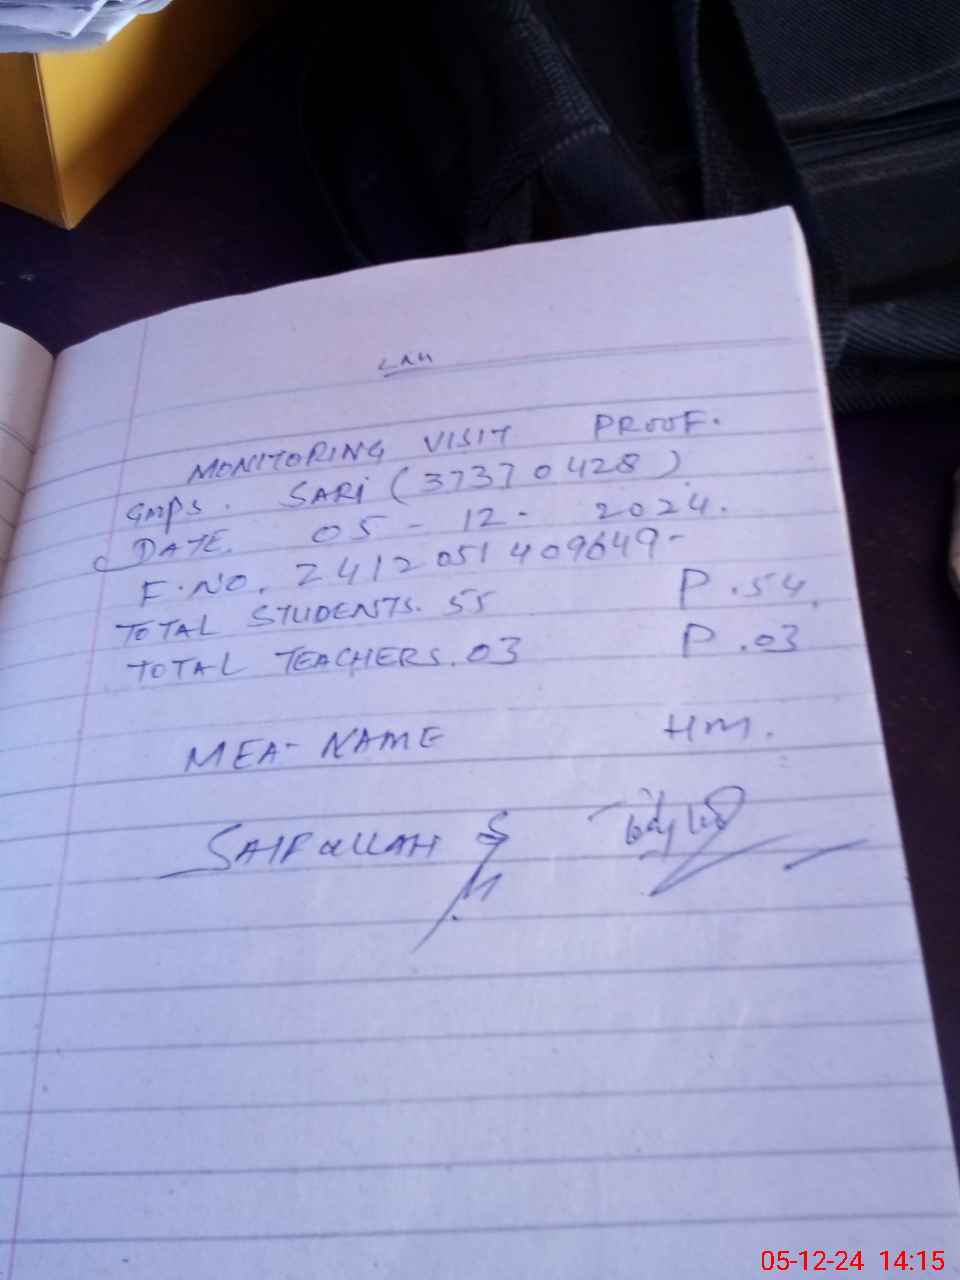 MONITORING VISIT PROOF.
GMPS. SARI (37370428)
DATE. 05-12-2024.
F.NO. 2412051409649-
TOTAL STUDENTS. 55 P.54.
TOTAL TEACHERS. 03 P.03
MEA-NAME HM.
SAIFULLAH
05-12-24 14:15